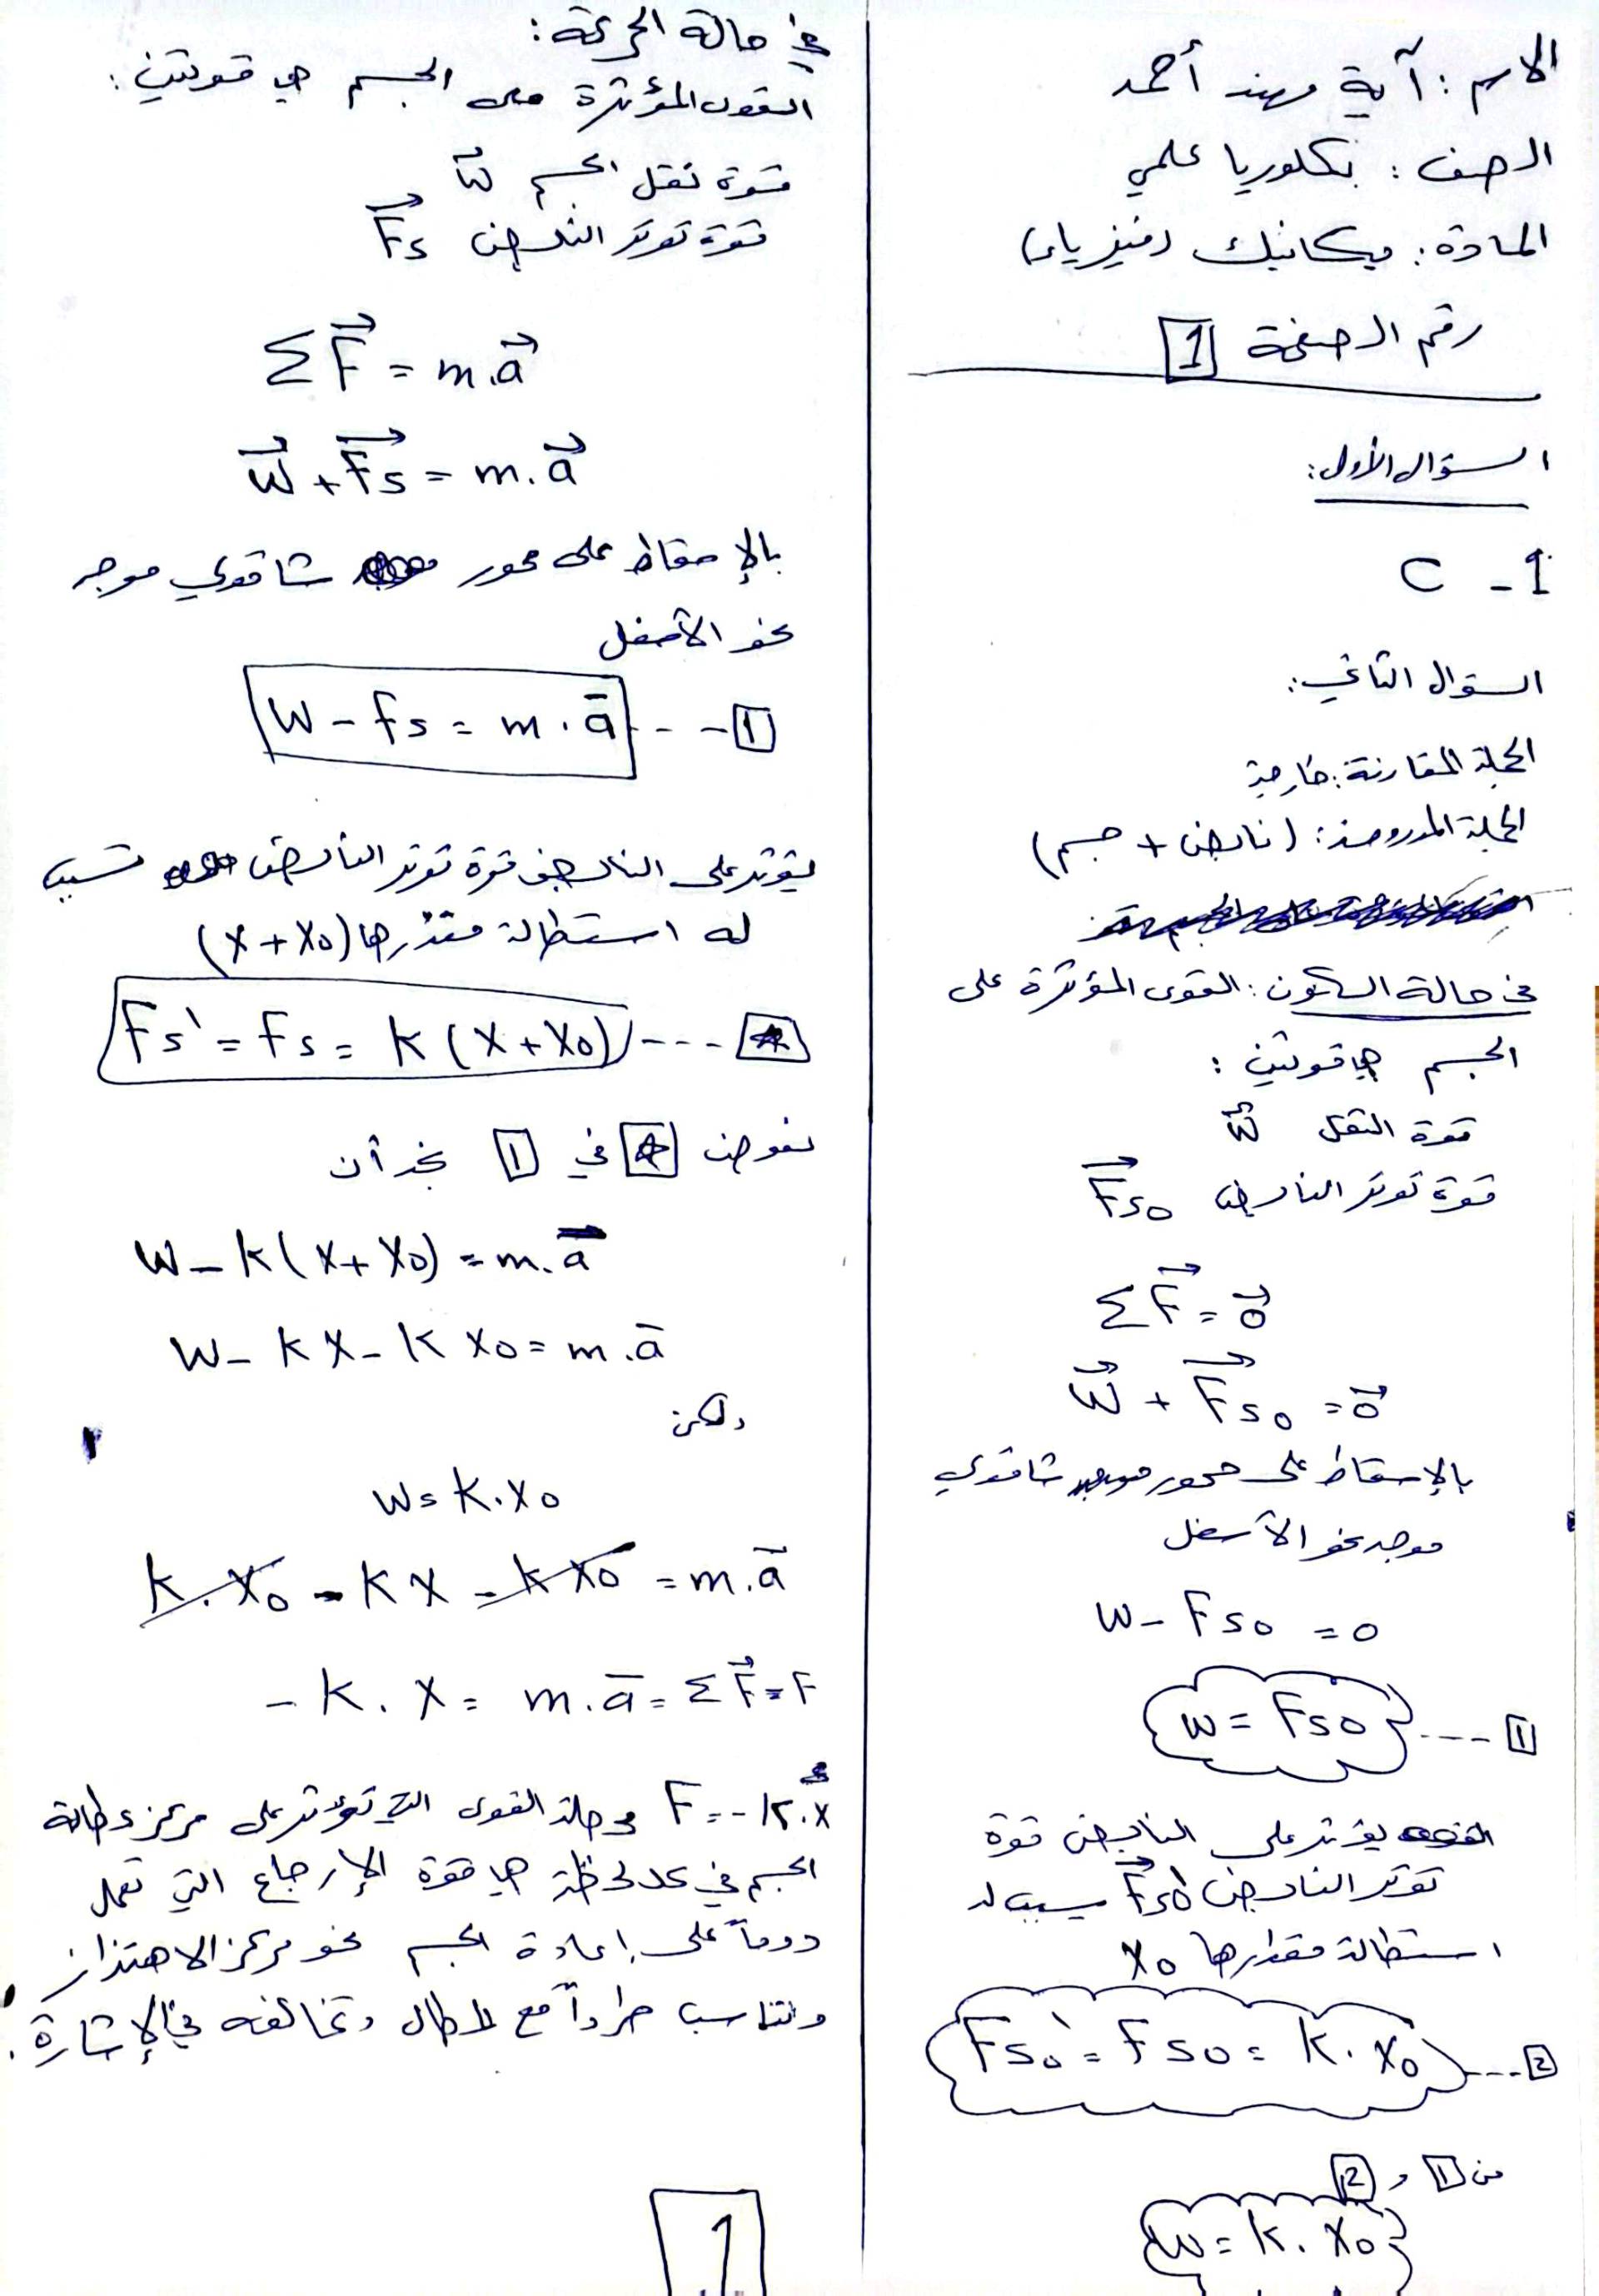 الاسم : آية مهند أحمد
الصف : بكلوريا علمي
المادة : ميكانيك (فيزياء)
رقم الصفحة 1
السؤال الأول:
1 - C
السؤال الثاني:
الجملة المقارنة : خارجية
الجملة المدروسة : (نابض + جسم)
في حالة السكون : القوى المؤثرة على
الجسم هي قوتين :
قوة الثقل W
قوة توتر النابض Fs0
ΣF = 0
W + Fs0 = 0
بالإسقاط على محور شاقولي
موجه نحو الأسفل
W - Fs0 = 0
W = Fs0 ---- 1
يؤثر على النابض قوة
توتر النابض Fs0' يسبب له
استطالة مقدارها x0
Fs0' = Fs0 = K . x0 ---- 2
من 1 و 2
W = K . x0
في حالة الحركة :
القوى المؤثرة على الجسم هي قوتين :
قوة ثقل الجسم W
قوة توتر النابض Fs
ΣF = m.a
W + Fs = m.a
بالإسقاط على محور شاقولي موجه
نحو الأسفل
W - Fs = m . a --- 1
يؤثر على النابض قوة توتر النابض تسبب
له استطالة مقدارها (x + x0)
Fs' = Fs = K (x + x0) --- *
نعوض * في 1 نجد أن
W - K(x + x0) = m.a
W - Kx - Kx0 = m.a
ولكن
W = K.x0
K.x0 - Kx - Kx0 = m.a
- K . x = m.a = ΣF = F
F = -K.x محصلة القوى التي تؤثر على مركز عطالة
الجسم في كل لحظة هي قوة الإرجاع التي تعمل
دوماً على إعادة الجسم نحو مركز الاهتزاز
وتتناسب طرداً مع المطال وتخالفه في الإشارة.
1